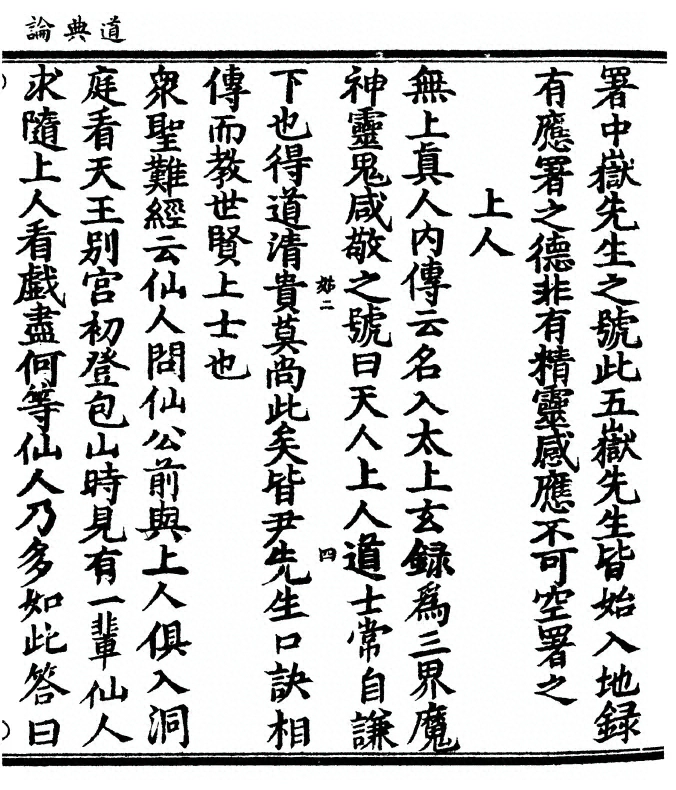 道典論
署中嶽先生之號此五嶽先生皆始入地録
有應署之德非有精靈感應不可空署之
上人
無上眞人内傳云名入太上玄録爲三界魔
神靈鬼咸敬之號曰天人上人道士常自謙
二
四
下也得道清貴莫尚此矣皆尹先生口訣相
傳而教世賢上士也
衆聖難經云仙人問仙公前與上人俱入洞
庭看天王别宫初登包山時見有一輩仙人
求隨上人看戲盡何等仙人乃多如此答曰